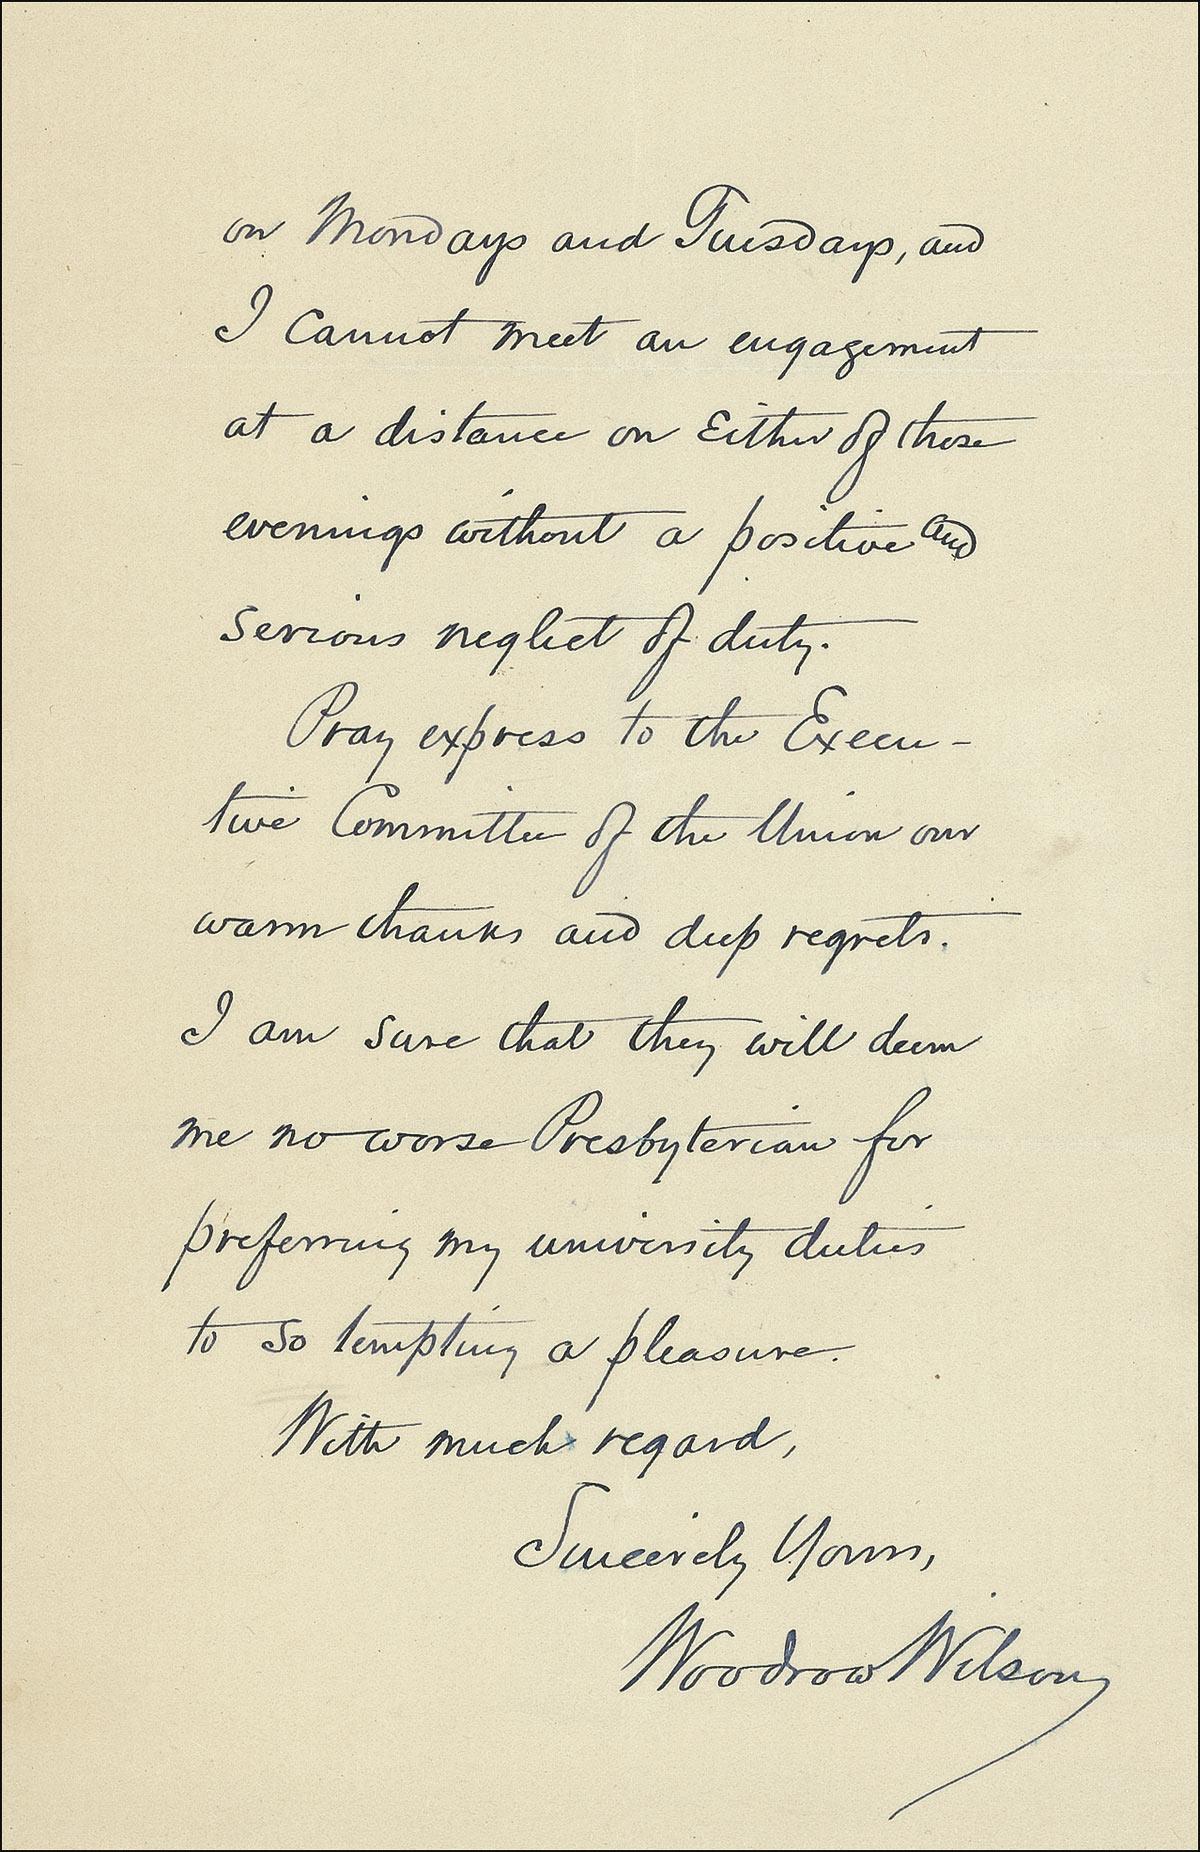 on Mondays and Tuesdays, and
I cannot meet an engagement
at a distance on either of those
evenings without a positive and
serious neglect of duty.
Pray express to the Execu-
tive Committee of the Union our
warm thanks and deep regrets.
I am sure that they will deem
me no worse Presbyterian for
preferring my university duties
to so tempting a pleasure.
With much regard,
Sincerely Yours,
Woodrow Wilson